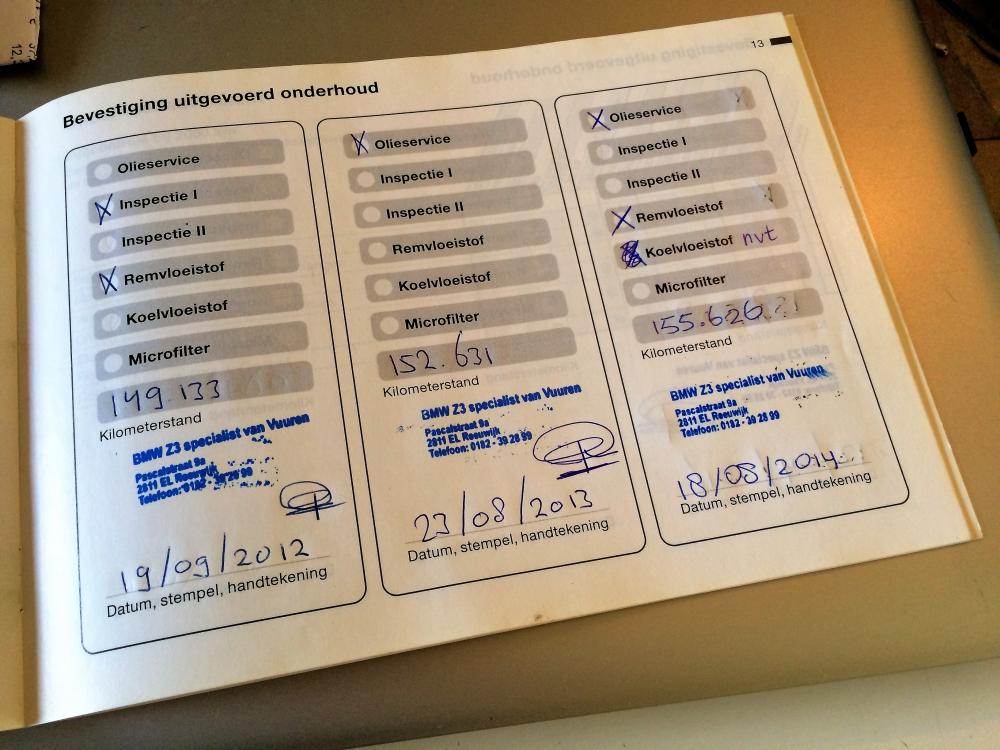 13
Bevestiging uitgevoerd onderhoud
Olieservice
X Inspectie I
Inspectie II
X Remvloeistof
Koelvloeistof
Microfilter
149.133
Kilometerstand
BMW Z3 specialist van Vuuren
Pascalstraat 9a
2811 EL Reeuwijk
Telefoon: 0182 - 39 28 99
19/09/2012
Datum, stempel, handtekening
X Olieservice
Inspectie I
Inspectie II
Remvloeistof
Koelvloeistof
Microfilter
152.631
Kilometerstand
BMW Z3 specialist van Vuuren
Pascalstraat 9a
2811 EL Reeuwijk
Telefoon: 0182 - 39 28 99
23/08/2013
Datum, stempel, handtekening
X Olieservice
Inspectie I
Inspectie II
X Remvloeistof
Koelvloeistof nvt
Microfilter
155.626
Kilometerstand
BMW Z3 specialist van Vuuren
Pascalstraat 9a
2811 EL Reeuwijk
Telefoon: 0182 - 39 28 99
18/08/2014
Datum, stempel, handtekening